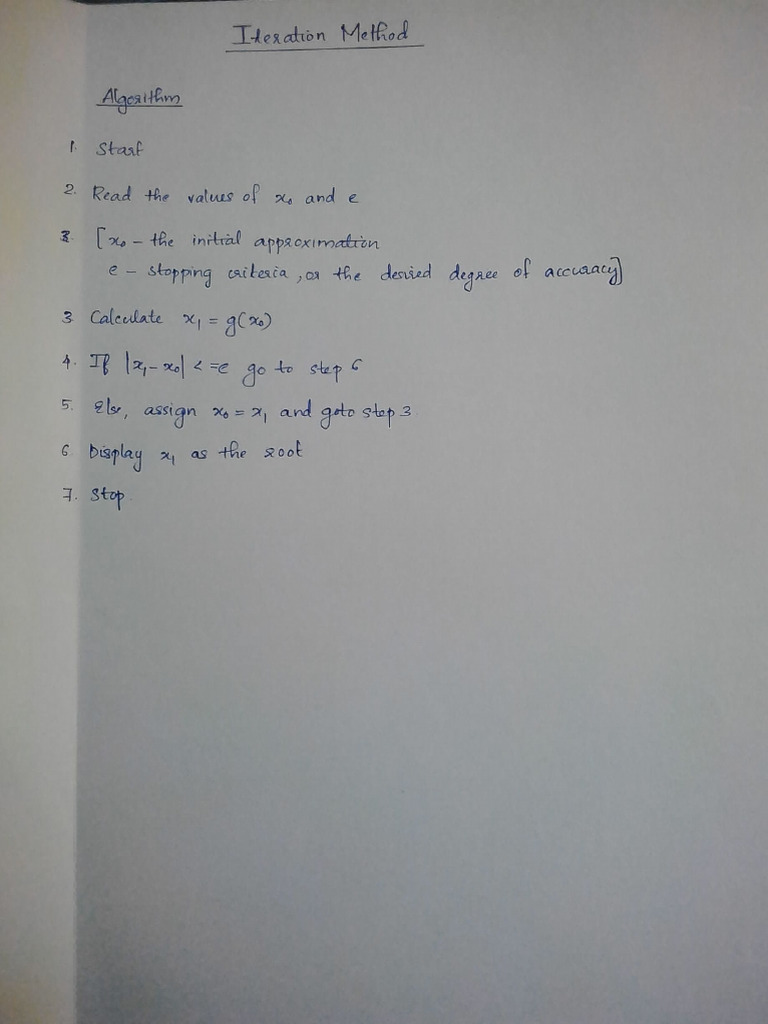 Iteration Method
Algorithm
1. Start
2. Read the values of x₀ and e
[x₀ - the initial approximation
e - stopping criteria, or the desired degree of accuracy]
3. Calculate x₁ = g(x₀)
4. If |x₁ - x₀| < = e go to step 6
5. Else, assign x₀ = x₁ and goto step 3.
6. Display x₁ as the root
7. Stop.